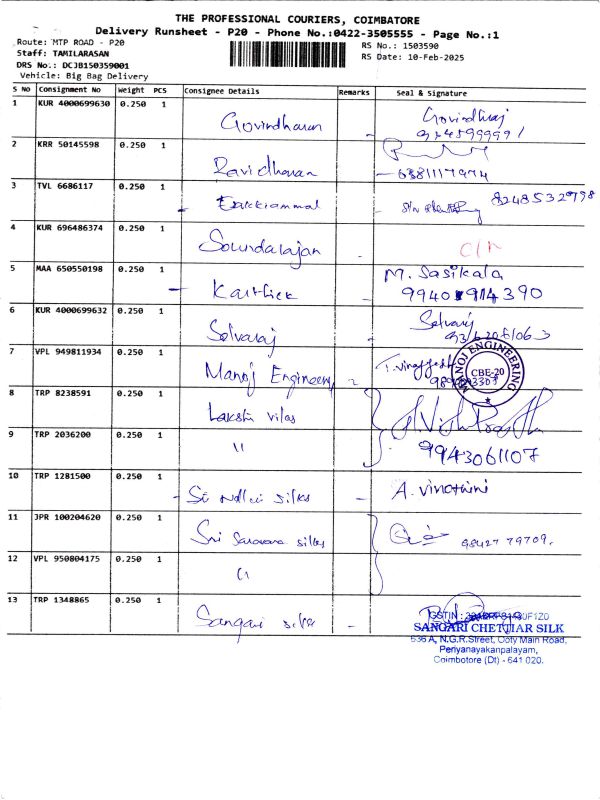 THE PROFESSIONAL COURIERS, COIMBATORE
Delivery Runsheet - P20 - Phone No.:0422-3505555 - Page No.:1
Route: MTP ROAD - P20
Staff: TAMILARASAN
DRS No.: DCJB150359001
Vehicle: Big Bag Delivery
RS No.: 1503590
RS Date: 10-Feb-2025
S No Consignment No Weight PCS Consignee Details Remarks Seal & Signature
1 KUR 4000699630 0.250 1 Govindharan - Govindhraj
9245999991
2 KRR 50145598 0.250 1 Ravidharan
3 TVL 6686117 0.250 1 - Esakkiammal 8248532798
4 KUR 696486374 0.250 1 Soundarajan
5 MAA 650550198 0.250 1 - Karthick M. Sasikala
99401914390
6 KUR 4000699632 0.250 1 Selvaraj Selvaraj
7 VPL 949811934 0.250 1 Manoj Engineering
MANOJ ENGINEERING
CBE-20
8 TRP 8238591 0.250 1 Lakshi vilas
9 TRP 2036200 0.250 1 " 9943061107
10 TRP 1281500 0.250 1 silks - A. Vinothini
11 JPR 100204620 0.250 1 Sri Saravana silks 98427 79709.
12 VPL 950804175 0.250 1 "
13 TRP 1348865 0.250 1 Sangari silk -
GSTIN:
SANGARI CHETTIAR SILK
536 A, N.G.R.Street, Ooty Main Road,
Periyanayakanpalayam,
Coimbotore (Dt) - 641 020.